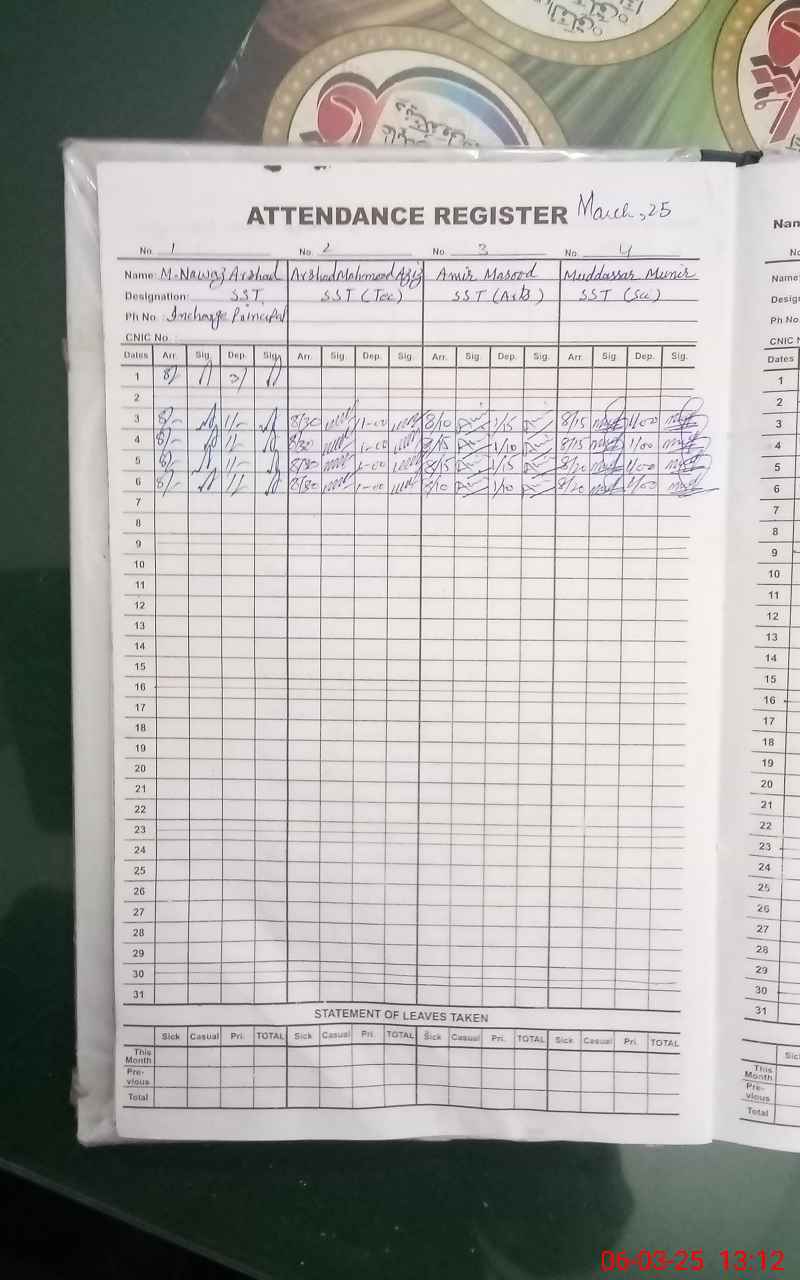 ATTENDANCE REGISTER March, 25
No. 1 No. 2 No. 3 No. 4
Name: M. Nawaz Arshad Arshad Mahmood Aziz Amir Masood Muddassar Munir
Designation: SST, SST (Tec) SST (Arts) SST (Sci)
Ph No.: Incharge Principal
CNIC No.:
Dates Arr. Sig. Dep. Sig. Arr. Sig. Dep. Sig. Arr. Sig. Dep. Sig. Arr. Sig. Dep. Sig.
1 8/- 3/
2
3 8/- 1/- 8/30 1-00 8/10 1/15 8/15 1/00
4 8/- 1/- 8/30 1-00 8/15 1/10 8/15 1/00
5 8/- 1/- 8/30 1-00 8/15 1/15 8/20 1/00
6 8/- 1/- 8/30 1-00 8/10 1/10 8/20 1/00
7
8
9
10
11
12
13
14
15
16
17
18
19
20
21
22
23
24
25
26
27
28
29
30
31
STATEMENT OF LEAVES TAKEN
Sick Casual Pri. TOTAL Sick Casual Pri. TOTAL Sick Casual Pri. TOTAL Sick Casual Pri. TOTAL
This Month
Pre-vious
Total
Name:
Ph No.
CNIC N
Dates
1
2
3
4
5
6
7
8
9
10
11
12
13
14
15
16
17
18
19
20
21
22
23
24
25
26
27
28
29
30
31
This Month
Pre-vious
Total
06-03-25 13:12